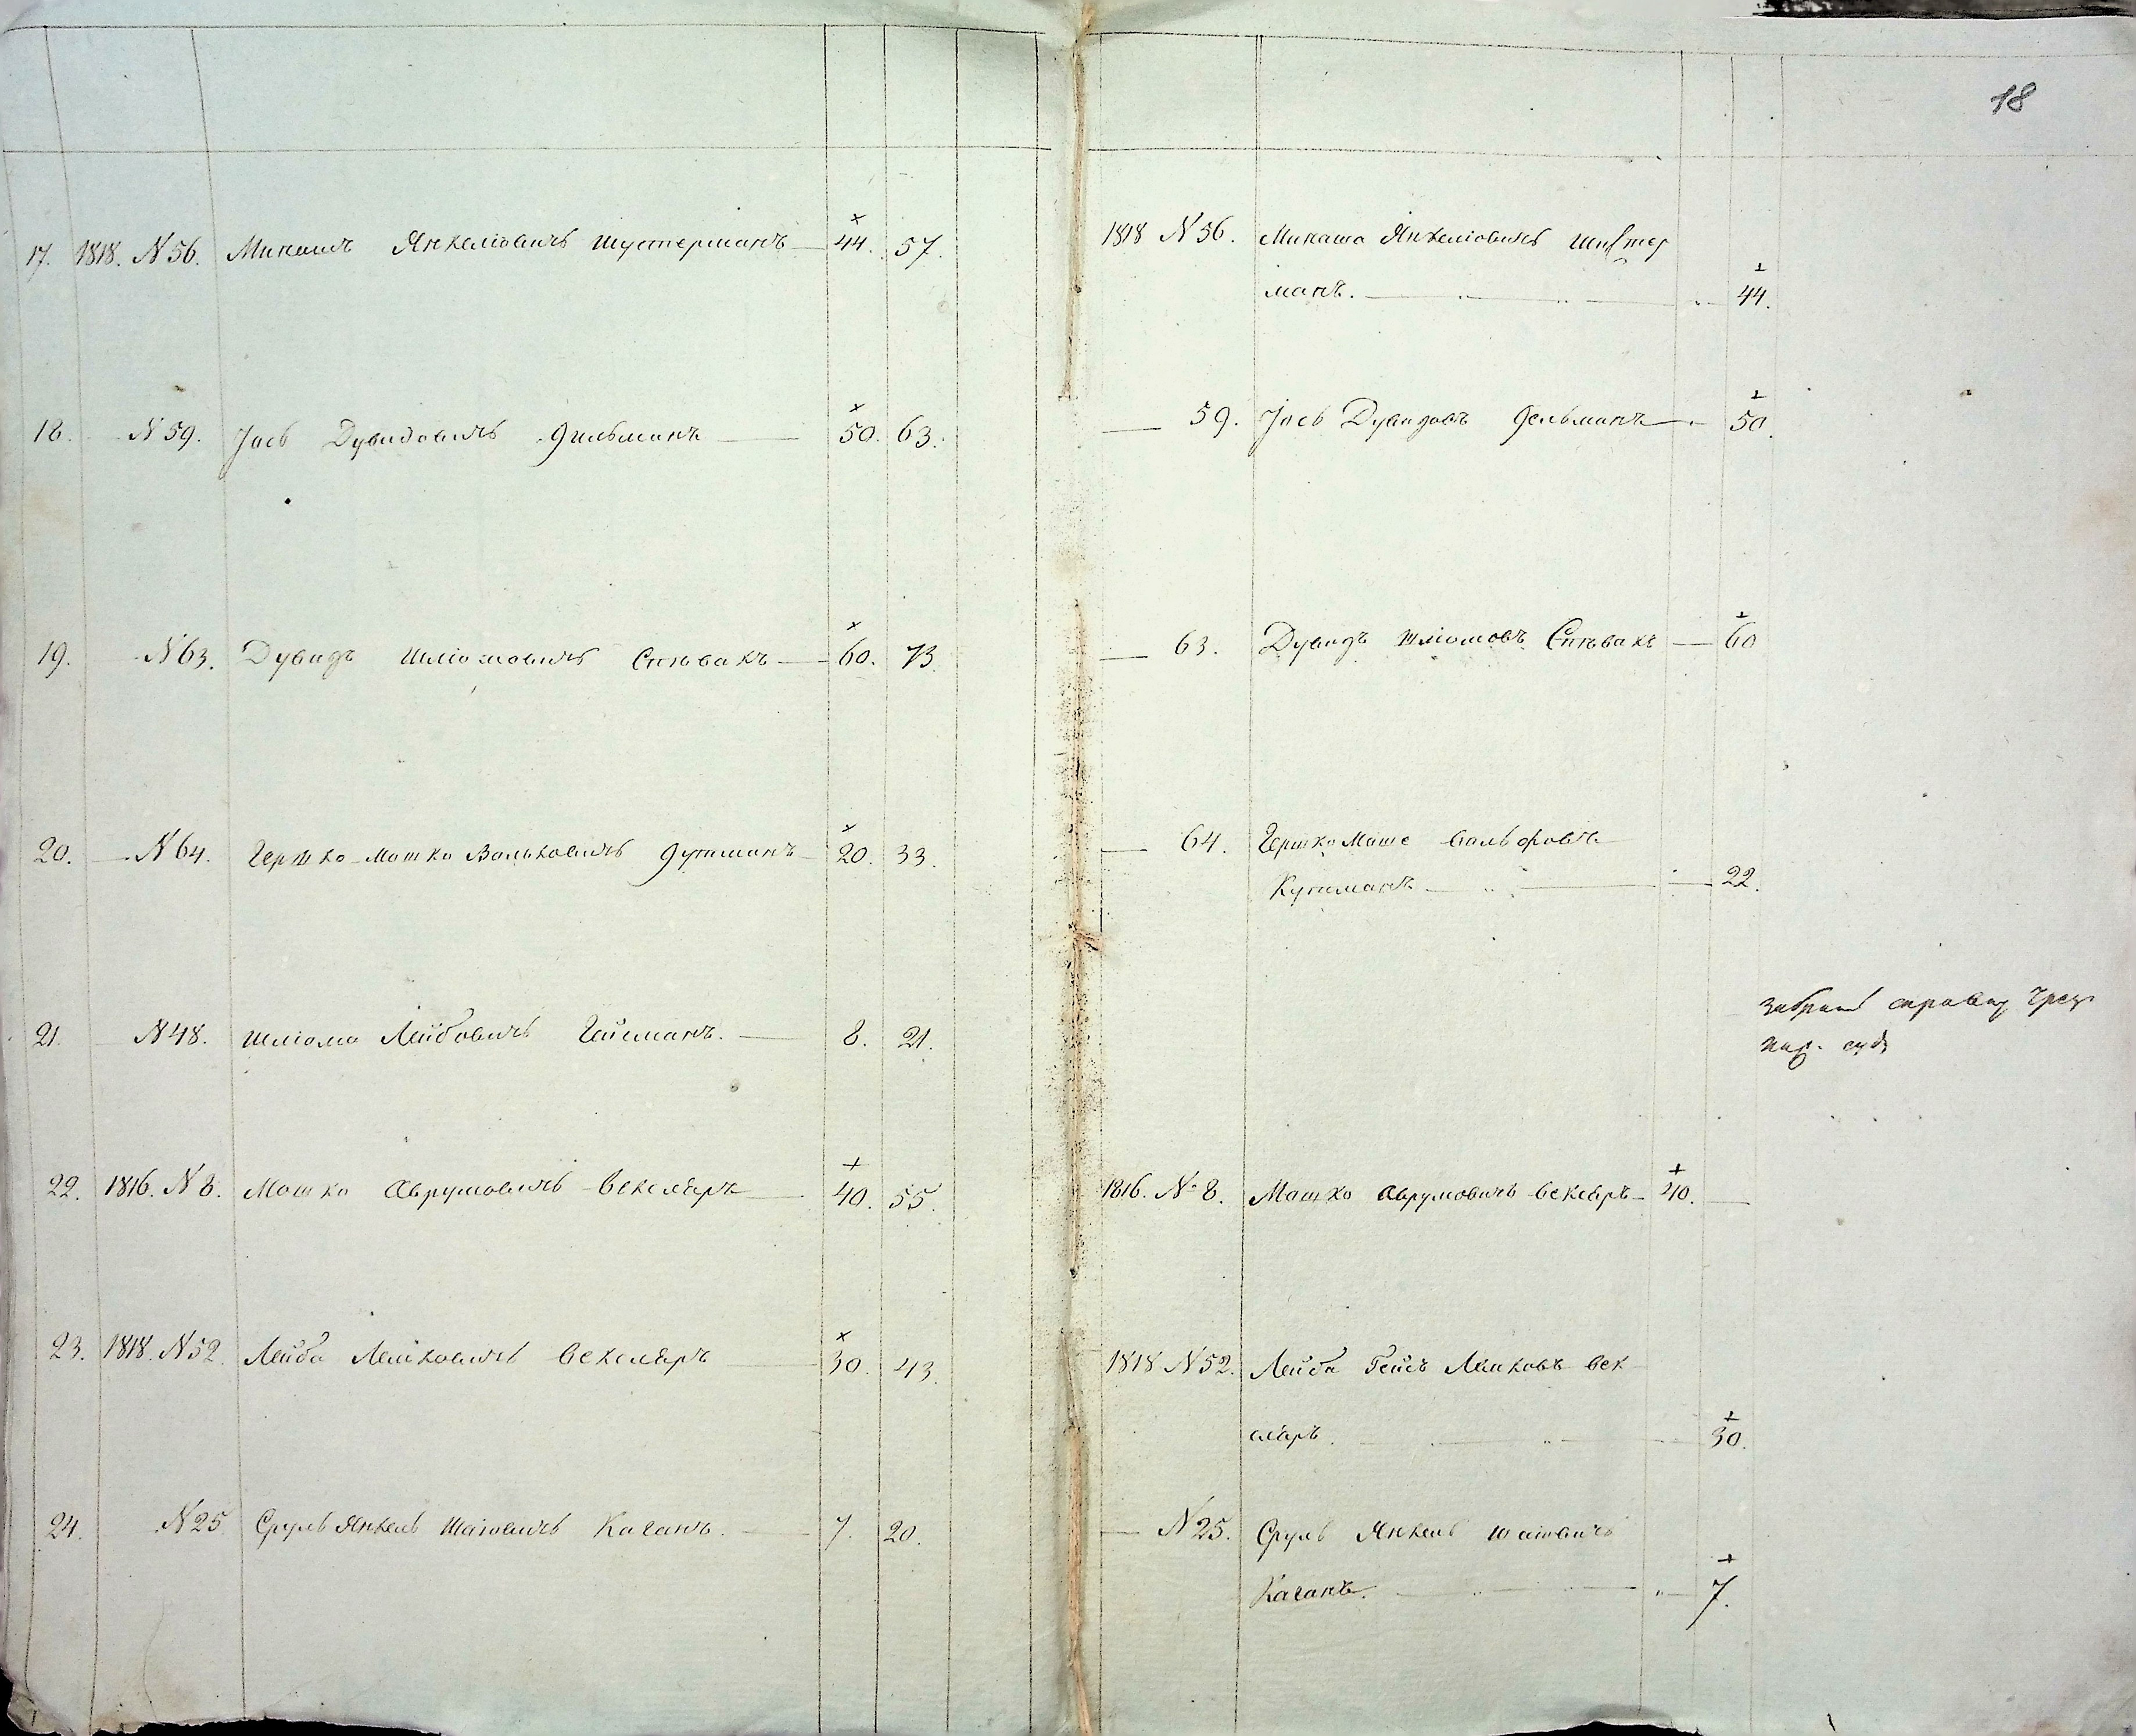 18
17. 1818. N 56. Минашъ Янкеліовичъ Шустерманъ — 44. 57.
18. N 59. Іосъ Дувидовичъ Фильманъ — 50. 63.
19. N 63. Дувидъ Шліомовичъ Спѣвакъ — 60. 73.
20. — N 64. Гершко-Мошко Вольковичъ Гутманъ — 20. 33.
21. N 48. Шліома Лейбовичъ Гайсманъ. — 8. 21.
22. 1816. N 8. Мошко Аврумовичъ Векслѣръ — 40. 55.
23. 1818. N 52. Лейба Лейковичъ Векслѣръ 30. 43.
24. N 25 Сруль Янкель Шаіовичъ Каганъ. — 7. 20.
1818 N 56. Минаша Янкеліовичъ Шустер
манъ. — 44.
— 59. Іосъ Дувидовъ Фельманъ — 50.
— 63. Дувидъ Шліомовъ Спѣвакъ — 60
— 64. Гершко Моше Вольфовъ
Кутманъ — 22.
справку
1816. N 8. Мошко Аврумовичъ Векслѣръ — 40. —
1818 N 52. Лейба Бейсъ Лейковъ Век
слѣръ. — 30.
— N 25. Сруль Янкель Шаіовичъ
Каганъ. — 7.